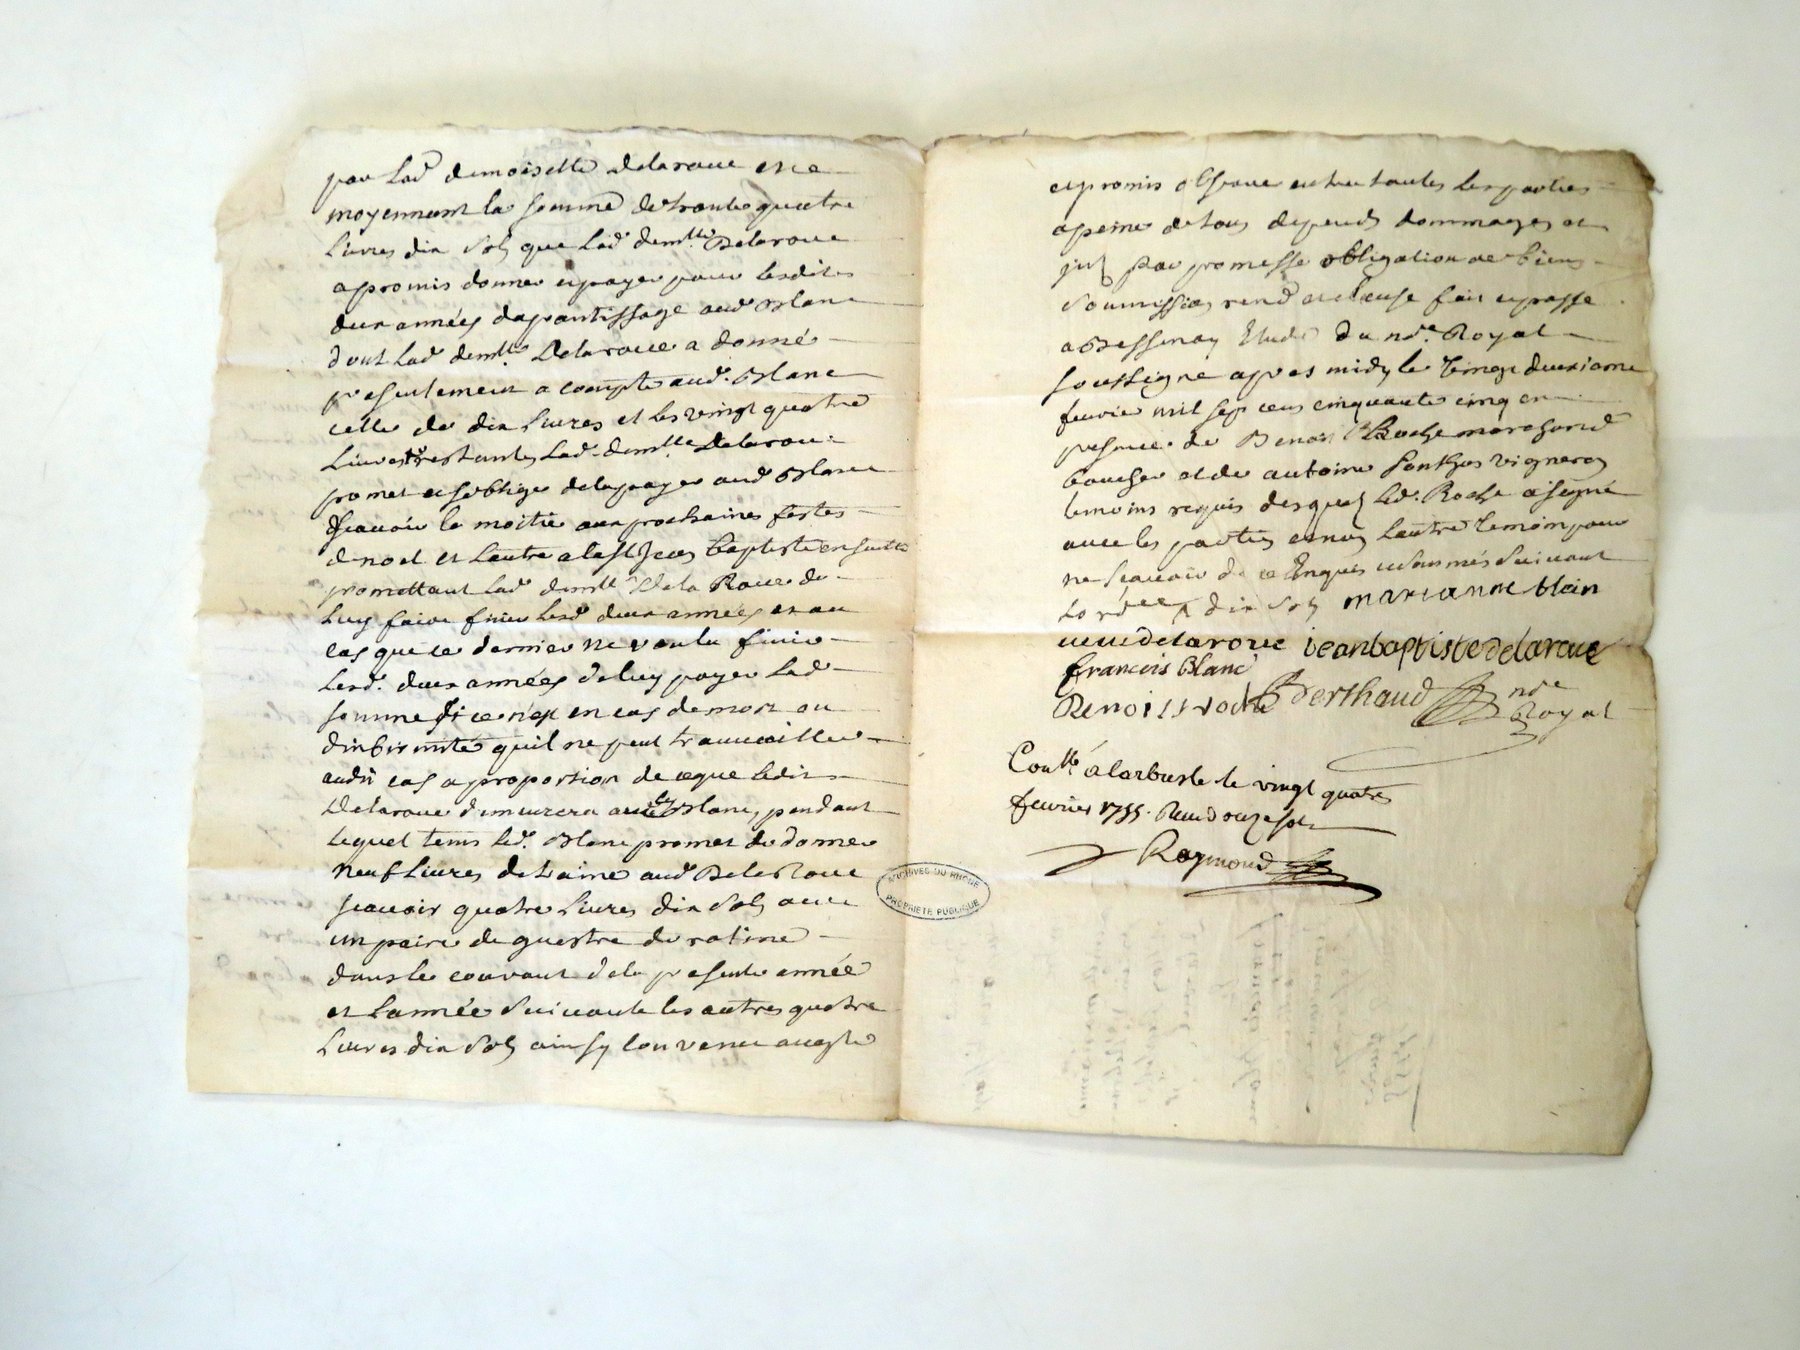 par lad. demoiselle Delaroue et ce
moyennant la somme de trante quatre
Livres dix Sols que lad. demlle Delaroue
a promis donner et payer pour lesdites
deux années dapantissage aud. Blanc
dont lad. demlle Delaroue a donné
presentement a compte aud. Blanc
celle de dix Livres et les vingt quatre
Livres restantes lad. demlle Delaroue
promet et soblige de la payer aud. Blanc
scavoir la moitié aux prochaines festes
de noel et lautre a la St Jean baptiste en suitte
promettant lad. demlle De la Roue de
luy faire finir lesd. deux années et au
cas que ce dernier ne voulu finir
lesd. deux années de luy payer lad.
somme si ce n'est en cas de mort ou
dinfirmité quil ne peut travailler
audit cas a proportion de ce que ledit
Delaroue demeurera avec led. Blanc, pendant
lequel tems led. Blanc promet de donner
neuf Livres de Laine aud. Delaroue
scavoir quatre Livres dix Sols avec
un paire de guestre de ratine
dans le courant de la presente année
et Lannée Suivante les autres quatre
Livres dix Sols ainsy convenu acceple
et promis observer entre toutes les parties
a peine de tous depends dommages et
par promesse obligation de biens
Soumission rend. et clause fait et passé
a Bessenay Etude du nre. Royal
soussigne apres midy le vingt deuxieme
fevrier mil sept cens cinquante cinq en
presence de Benoit Roche marchand
boucher et de antoine vigneron
temoins requis desquels led. Roche a signé
avec les parties et non lautre temoin pour
ne scavoir de ce Enquis et sommés Suivant
Lord.ce dix Sols marianne blein
veuve delaroue jeanbaptiste delaroue
francois Blanc
Benoist roche Berthaud nre
Royal
Conllé á larbresle le vingt quatre
fevrier 1755. Receu douze sols
Raymond
ARCHIVES DU RHÔNE
PROPRIÉTÉ PUBLIQUE